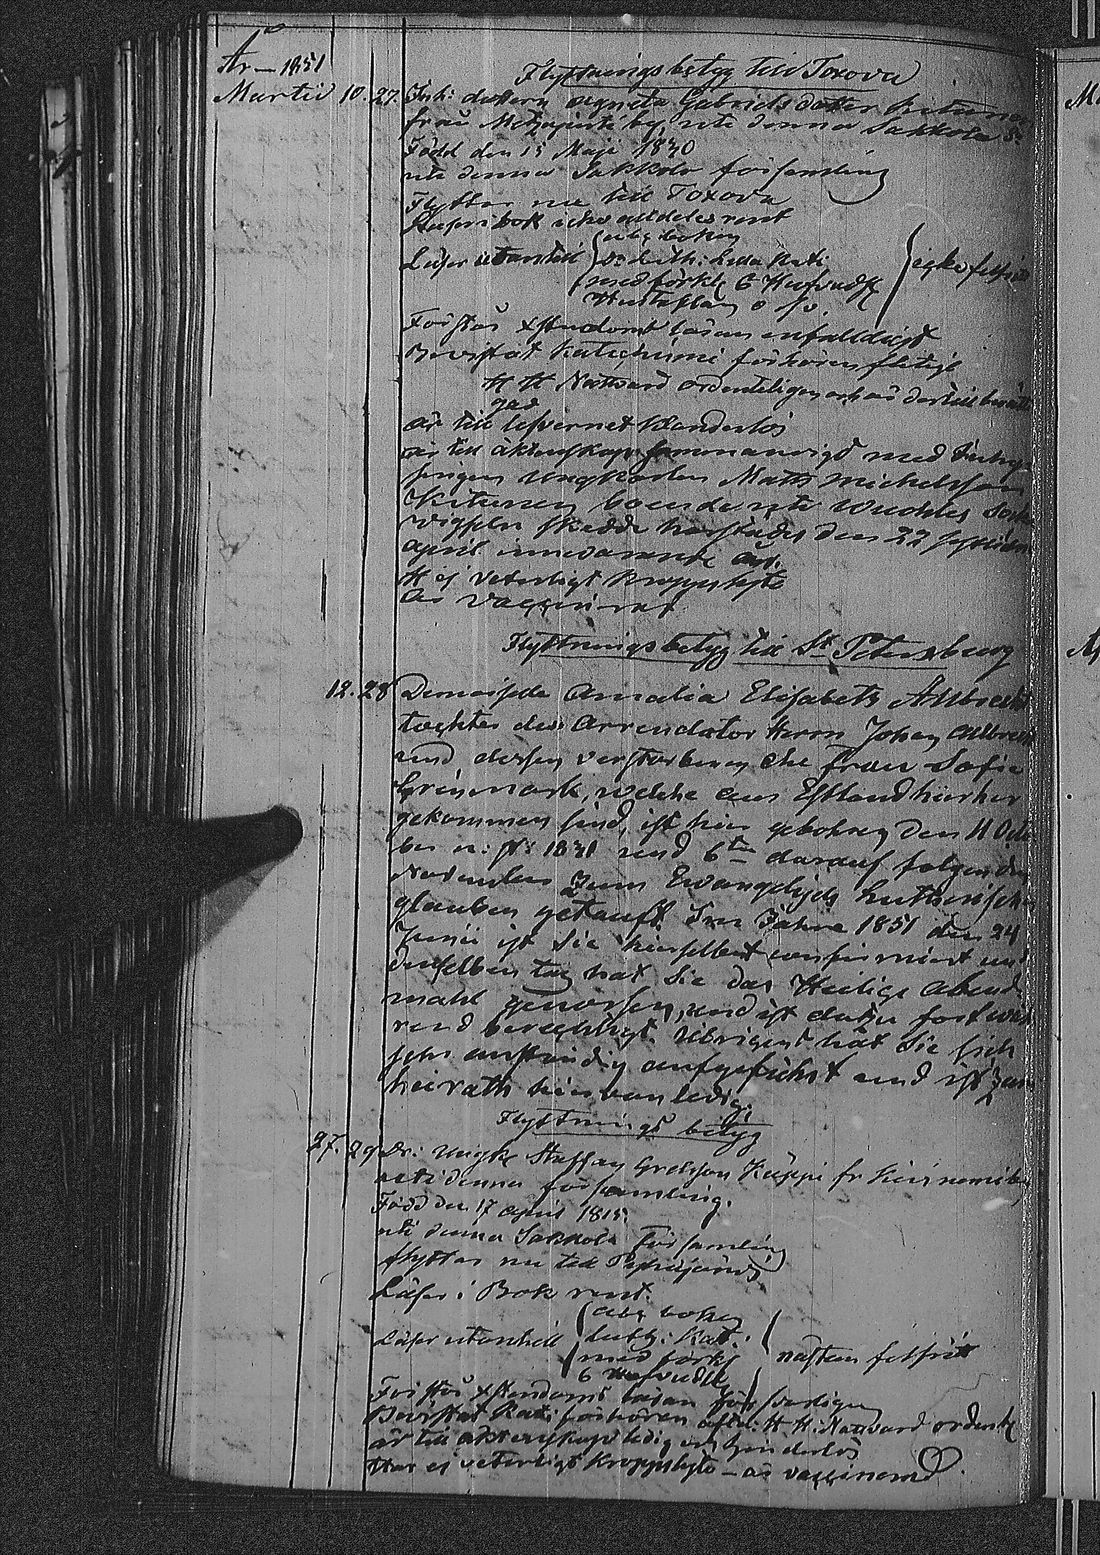 År 1851
Flyttningsbetyg till Toxova
Martii 10. 27. Inh: dottern Agneta Gabrielsdotter
från by uti denna Sakkola Sn
Född den 15 Maji 1830
uti denna Sakkola församling
Flyttar nu till Toxova
Läser i bok icke alldeles rent
abc boken
Läser utantill D: Luth: lilla Kat:
med förkl 6 Hufvudst
Hustaflan o s v.
icke felfritt
Förstår Xstendoms läran enfaldigt
Bevistat Katechismi förhören flitigt
H H Nattvard ordenteligen och är dertill berätti
gad
är till lefvernet klanderlös
är till äktenskap sammanvigd med Inhy
singen Ungkarlen Matts Michelsson
Kiturien boende uti Wuoles Sokn
Vigseln skedde härstädes den 22
April innevarande år.
H ej veterligt kroppslyte
är vaccinerad
Flyttningsbetyg till St Petersburg
12. 28 Demoiselle Amalia Elisabeth Allbrecht
tochter des Arrendator Herrn Johan Allbrecht
und dessen verstorbenen Ehe frau Sofie
Grönmark, welche aus Estland hierher
gekommen sind, ist hier gebohren den 11 Octo
ber n: st: 1831 und 6ten darauf folgenden
November zum Ewangelisch Lutherischen
glauben getauft. Im Jahre 1851 den 24
Junii ist Sie hierselbst confirmirt und
denselben tag hat Sie das Heilige Abend
mahl genossen, und ist dazu fortwäh
rend berechtigt. Übrigens hat Sie sich
sehr anständig aufgeführt und ist zum
heirath ledig.
Flyttnings betyg
27. 29 Dr: Ungk Staffan Grelsson Käppi fr
uti denna församling.
Född den 17 April 1815.
uti denna Sakkola Församling
flyttar nu till Pyhäjärvi
Läser i Bok rent.
abc boken
Läser utantill Luth: Kat:
med förkl
6 Hufvudst
nästan felfritt
Förstår Xstendoms läran försvarligen
Bevistat Kat: förhören ofta: H H: Nattvard ordentl
är till äktenskap ledig och hinderlös
Har ej veterligt kroppslyte – är vaccinerad.